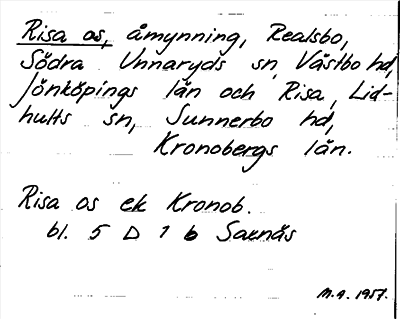 Risa os, åmynning, Realsbo,
Södra Unnaryds sn, Västbo hd,
Jönköpings län och Risa, Lid-
hults sn, Sunnerbo hd,
Kronobergs län.
Risa os ek Kronob.
bl. 5 D 1 b Saxnäs
M.a. 1957.